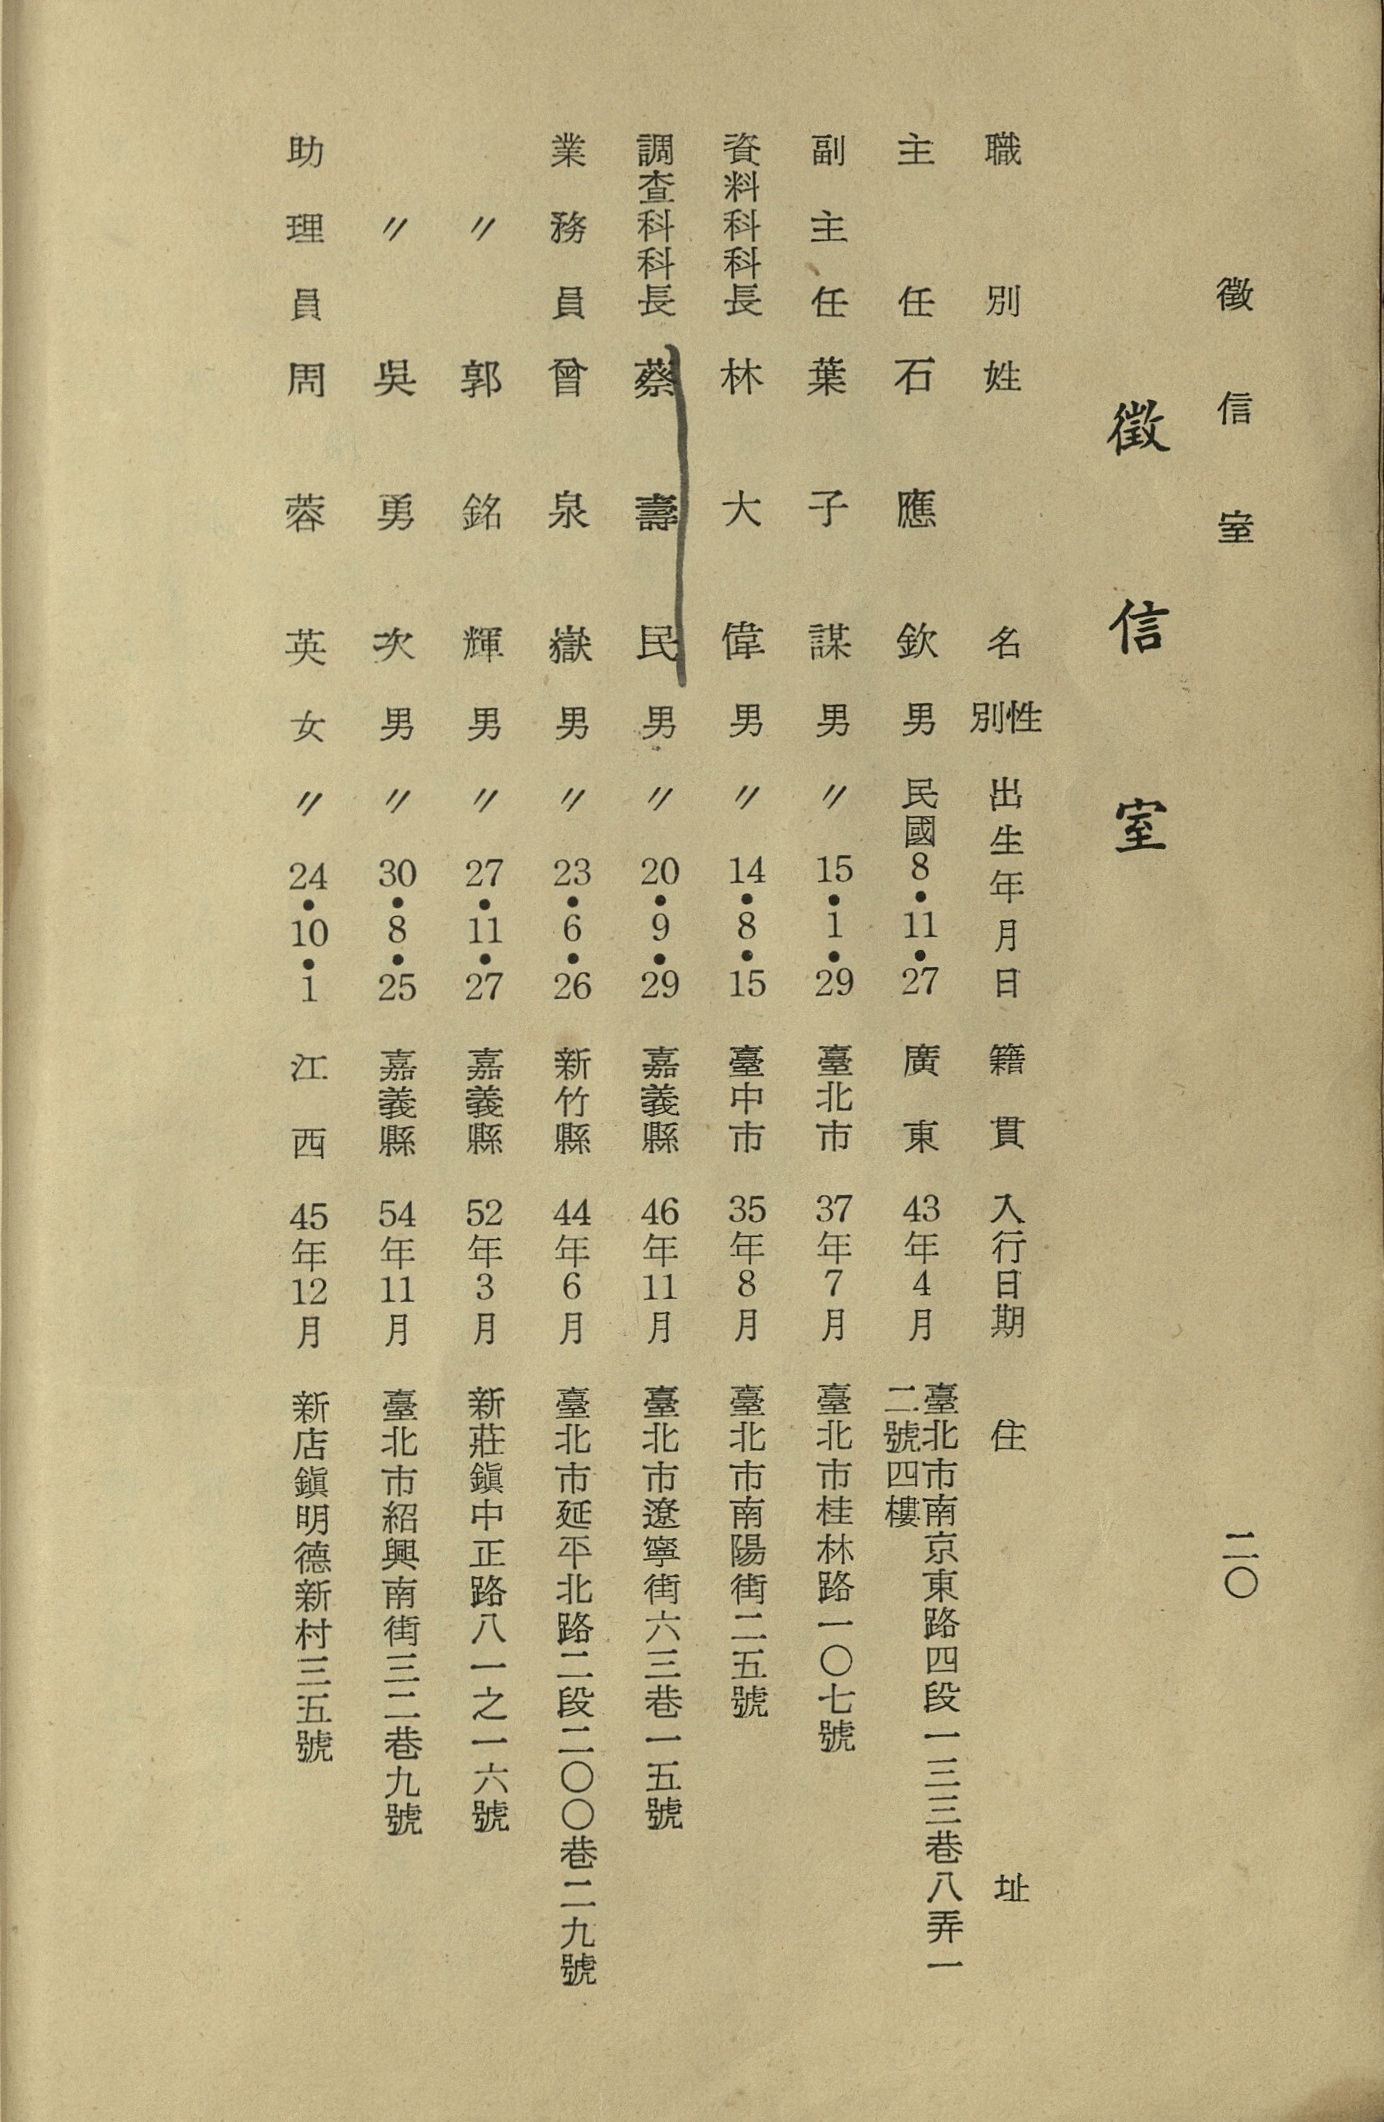 徵信室
二〇
徵信室
職別 姓名 性別 出生年月日 籍貫 入行日期 住址
主任 石應欽 男 民國8•11•27 廣東 43年4月 臺北市南京東路四段一三三巷八弄一
二號四樓
副主任 葉子謀 男 〃15•1•29 臺北市 37年7月 臺北市桂林路一〇七號
資料科科長 林大偉 男 〃14•8•15 臺中市 35年8月 臺北市南陽街二五號
調查科科長 蔡壽民 男 〃20•9•29 嘉義縣 46年11月 臺北市遼寧街六三巷一五號
業務員 曾泉嶽 男 〃23•6•26 新竹縣 44年6月 臺北市延平北路二段二〇〇巷二九號
〃 郭銘輝 男 〃27•11•27 嘉義縣 52年3月 新莊鎮中正路八一之一六號
〃 吳勇次 男 〃30•8•25 嘉義縣 54年11月 臺北市紹興南街三二巷九號
助理員 周蓉英 女 〃24•10•1 江西 45年12月 新店鎮明德新村三五號